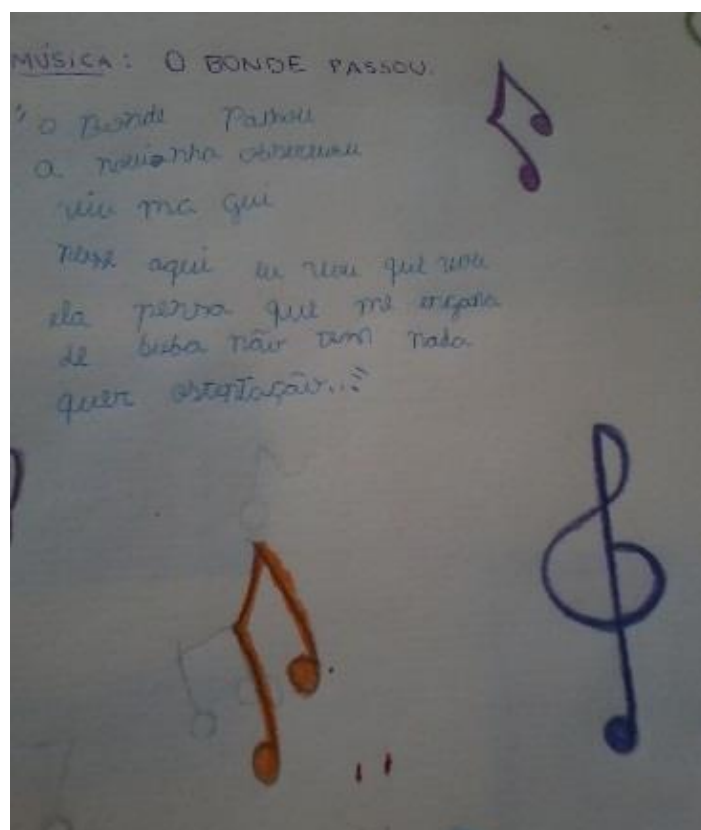 MÚSICA: O BONDE PASSOU.
"O Bonde Passou
a novinha observou
viu ma gui
aqui eu vou que vou
ela pensa que me engana
de buba não tem nada
quer ostentação..."